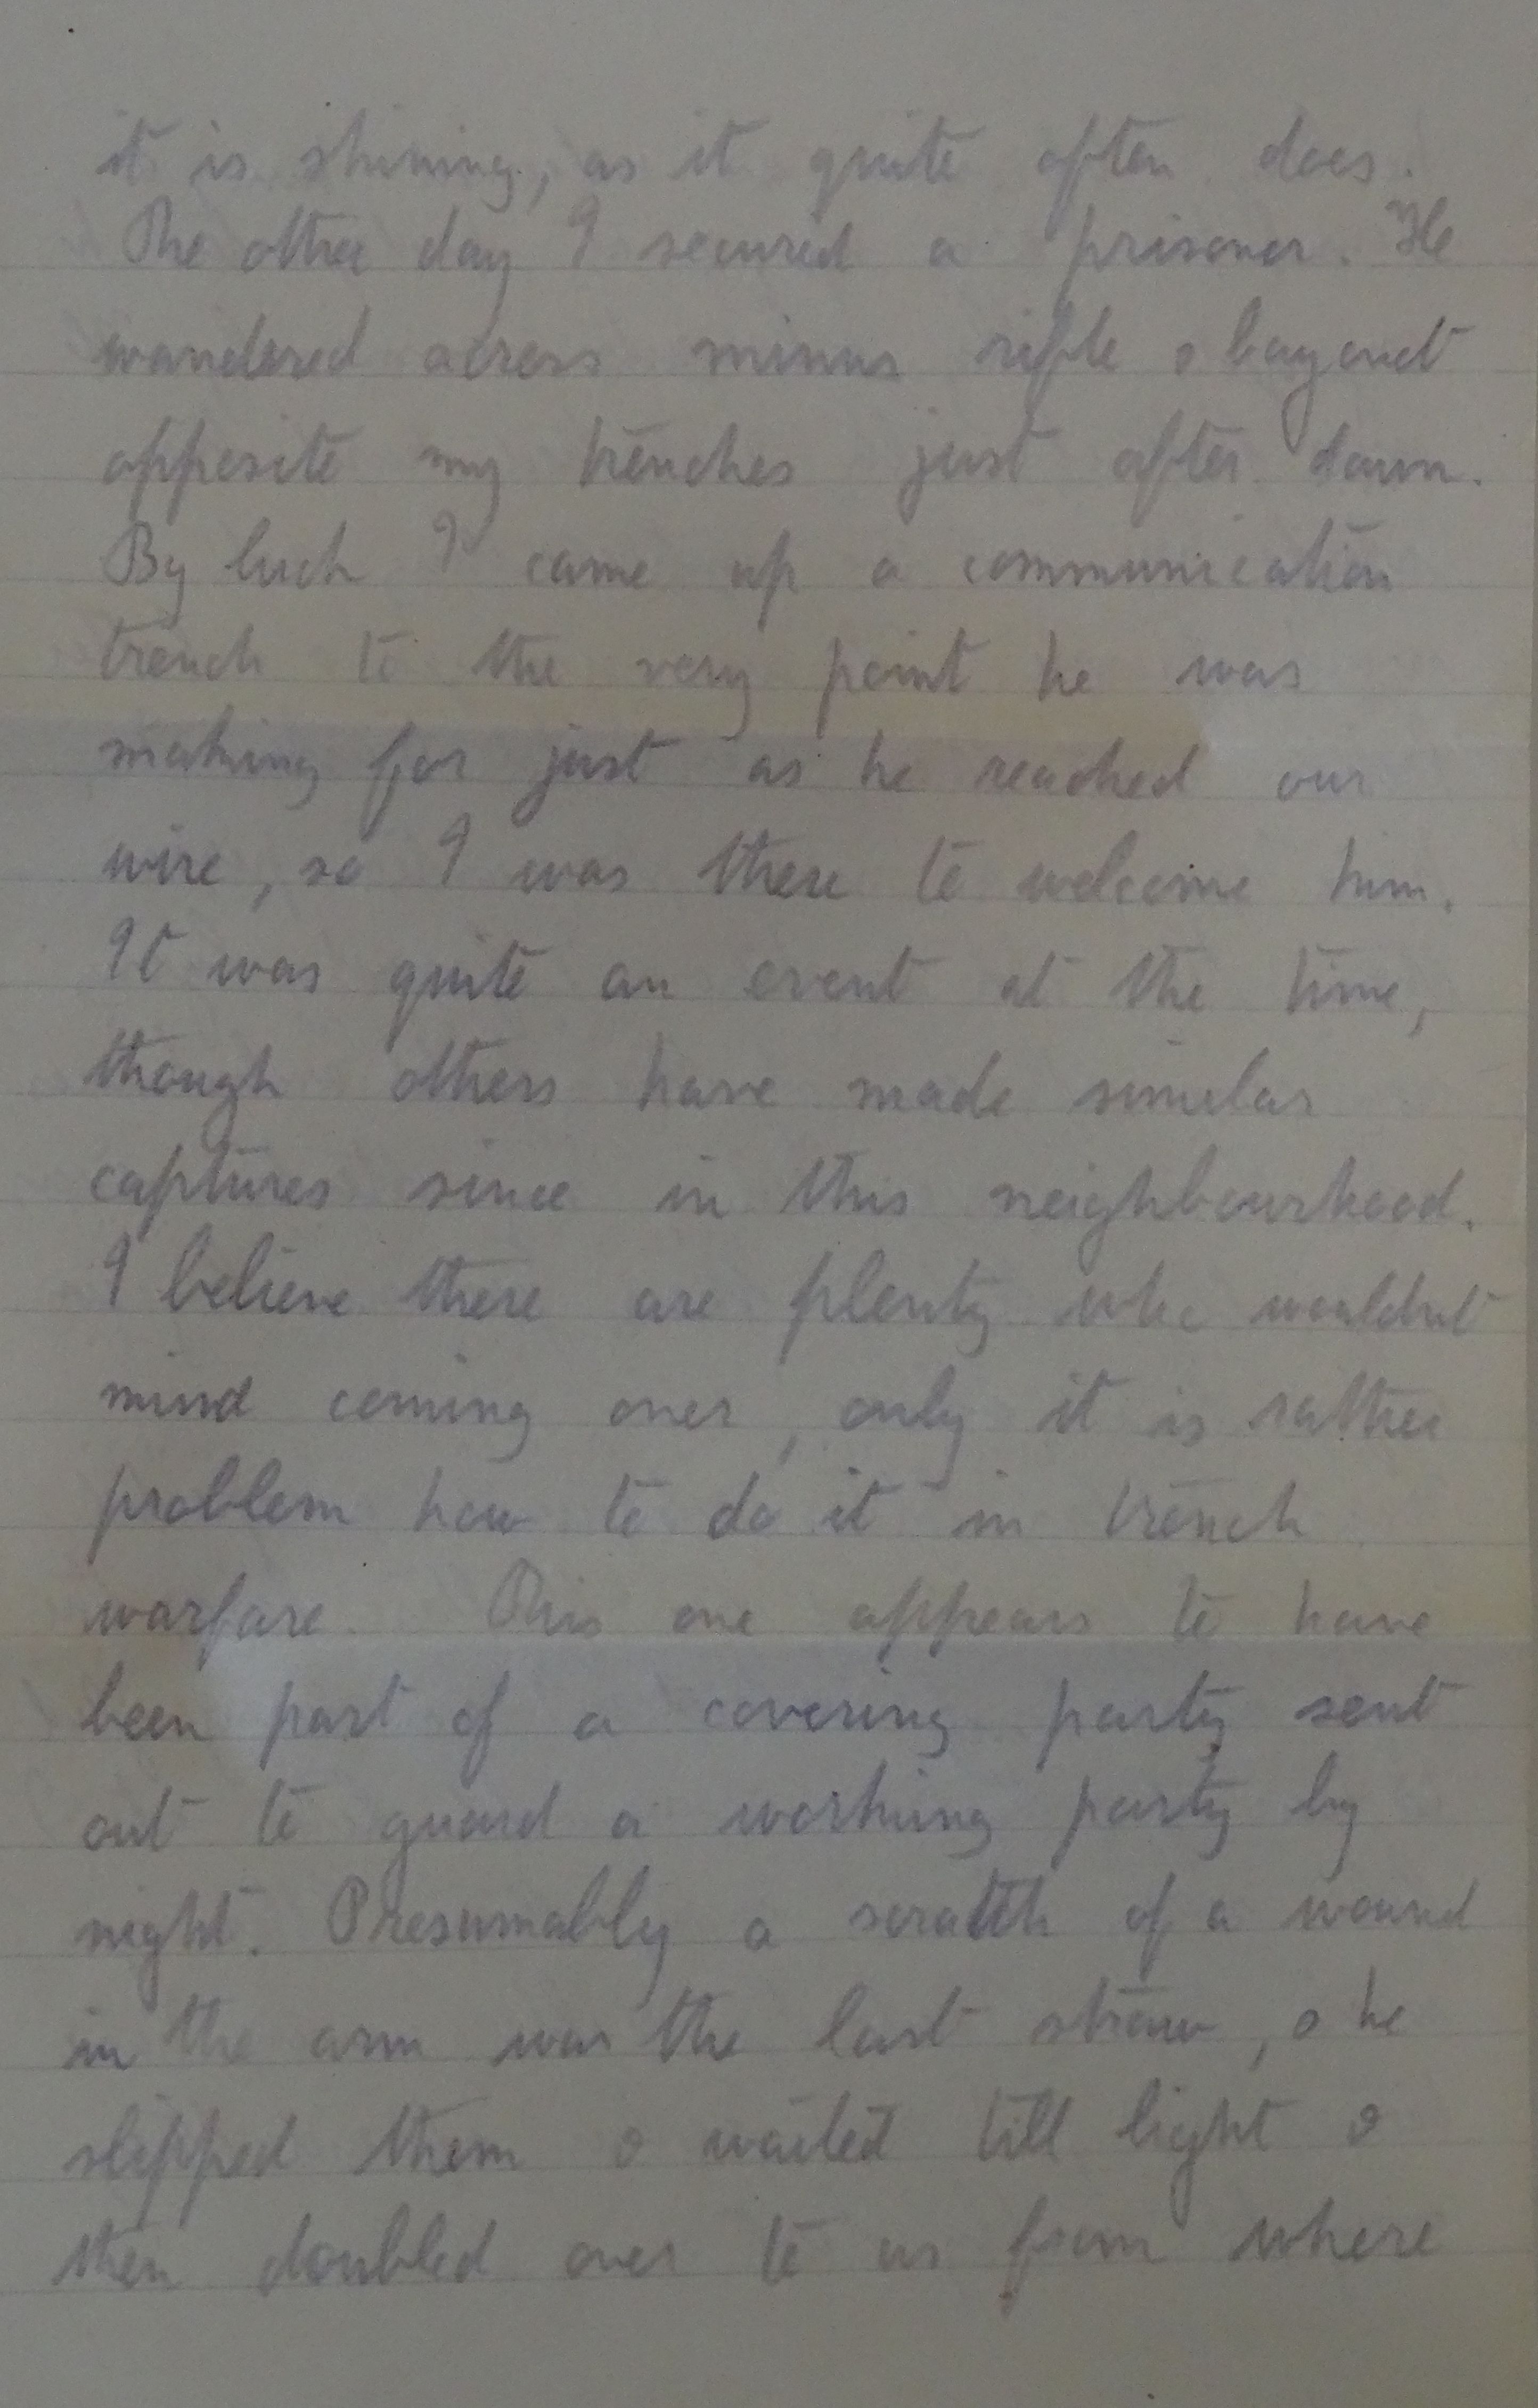 it is shining, as it quite often does.
The other day I secured a prisoner. He
wandered across minus rifle & bayonet
opposite my trenches just after dawn.
By luck I came up a communication
trench to the very point he was
making for just as he reached our
wire, so I was there to welcome him.
It was quite an event at the time,
though others have made similar
captures since in this neighbourhood.
I believe there are plenty who wouldnt
mind coming over, only it is rather
problem how to do it in trench
warfare. This one appears to have
been part of a covering party sent
out to guard a working party by
night. Presumably a scratch of a wound
in the arm was the last straw, & he
slipped them & waited till light &
then doubled over to us from where